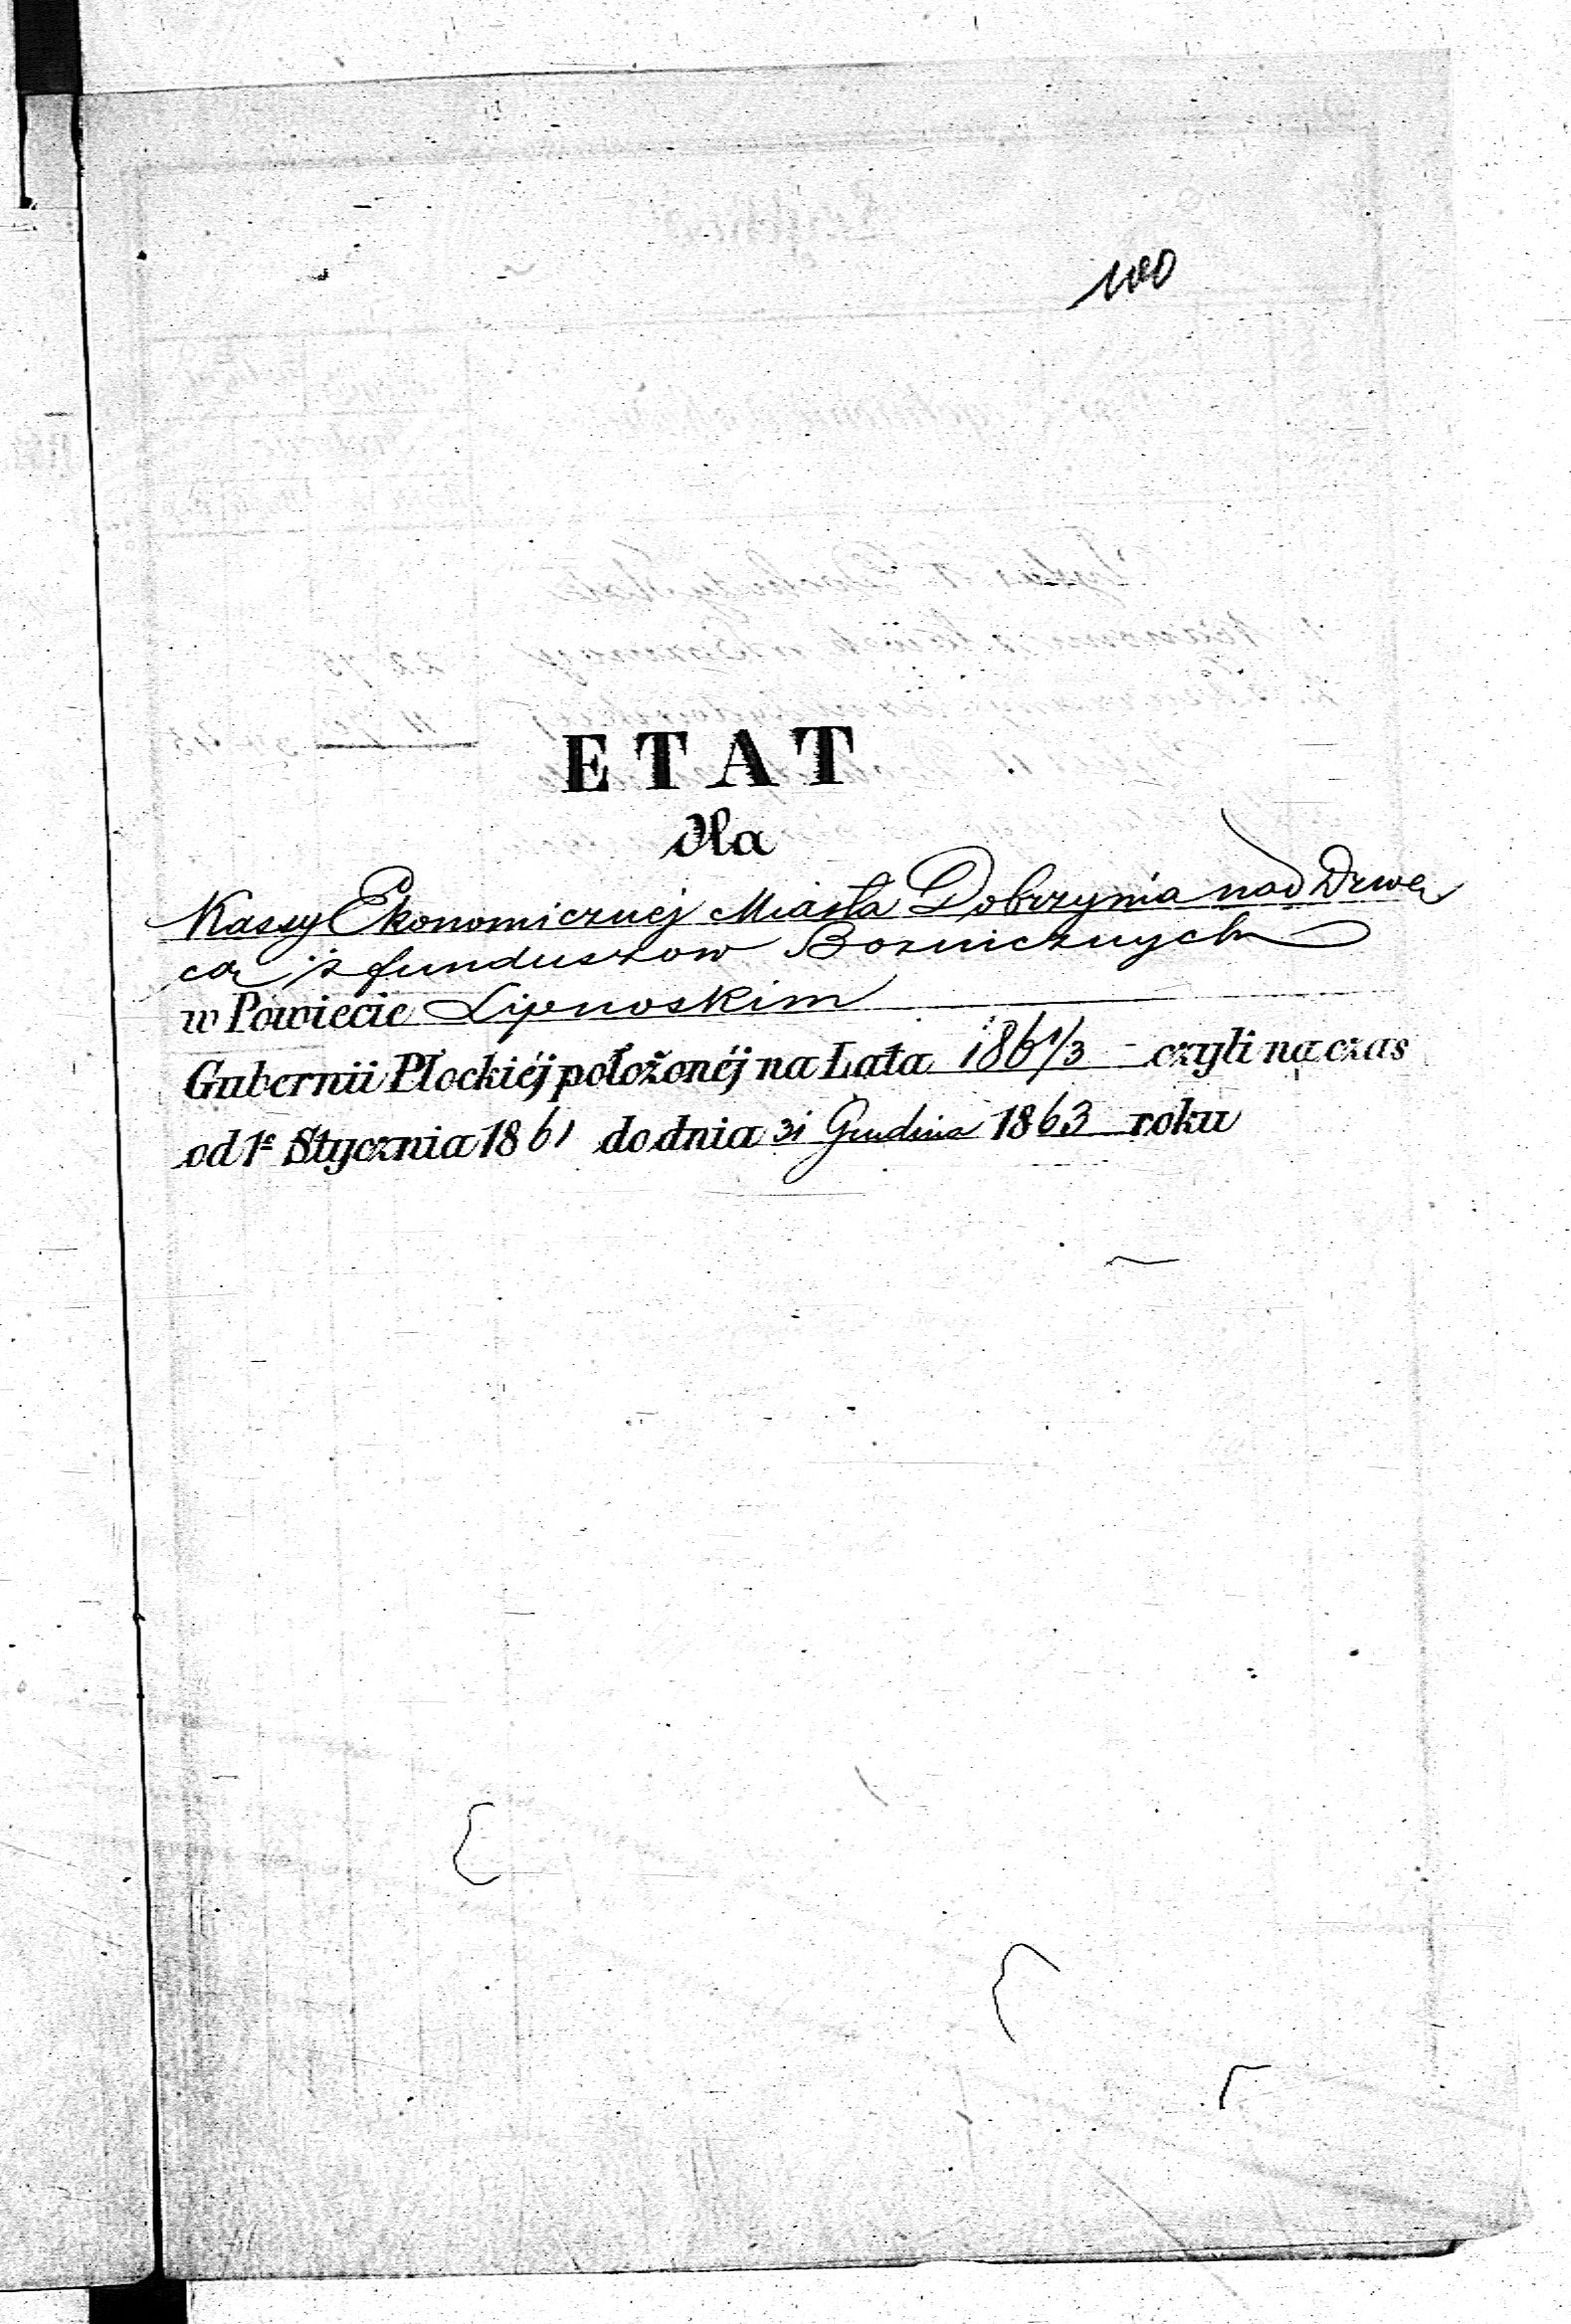 100
ETAT
dla
Kassy Ekonomicznej Miasta Dobrzynia nad Drwę
cą z funduszow Boznicznych
w Powiecie Lipnoskim
Gubernii Płockiéj położonéj na Lata 1861/3 - czyli na czas
od 1º Stycznia 1861 do dnia 31 Grudnia 1863 roku